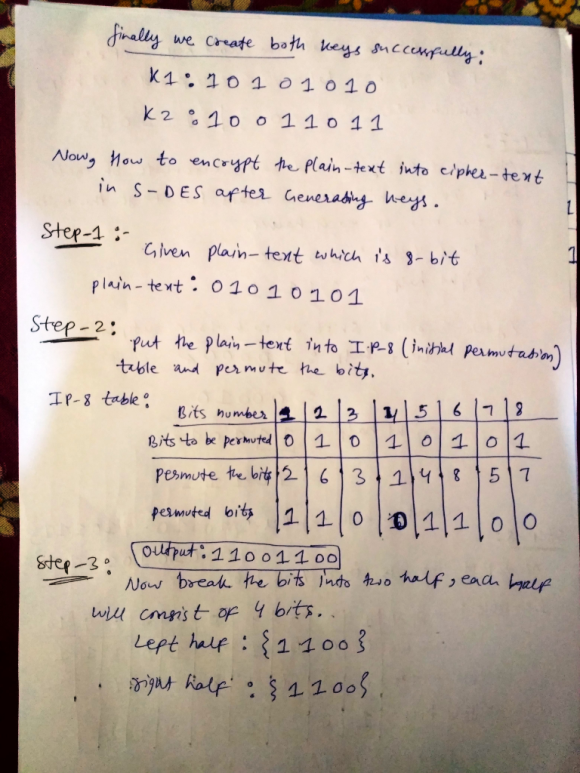 finally we create both keys successfully:
K1: 10101010
K2: 10011011
Now, How to encrypt the plain-text into cipher-text
in S-DES after Generating keys.
Step-1 :-
Given plain-text which is 8-bit
plain-text: 01010101
Step-2:
put the plain-text into I.P-8 (initial permutation)
table and permute the bits.
IP-8 table:
Bits number 1 2 3 4 5 6 7 8
Bits to be permuted 0 1 0 1 0 1 0 1
permute the bits 2 6 3 1 4 8 5 7
permuted bits 1 1 0 0 1 1 0 0
Output: 11001100
Step-3:
Now break the bits into two half, each half
will consist of 4 bits.
Left half : {1100}
right half : {1100}